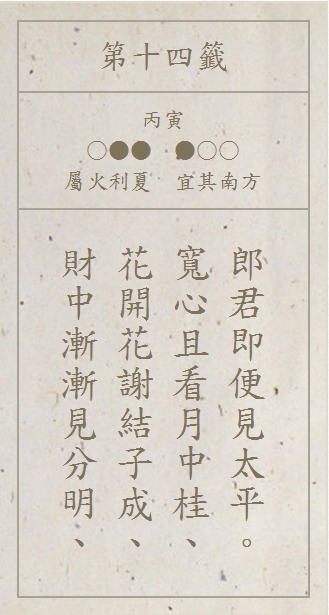 第十四籤
丙寅
○●● ●○○
屬火利夏 宜其南方
財中漸漸見分明、
花開花謝結子成、
寬心且看月中桂、
郎君即便見太平。